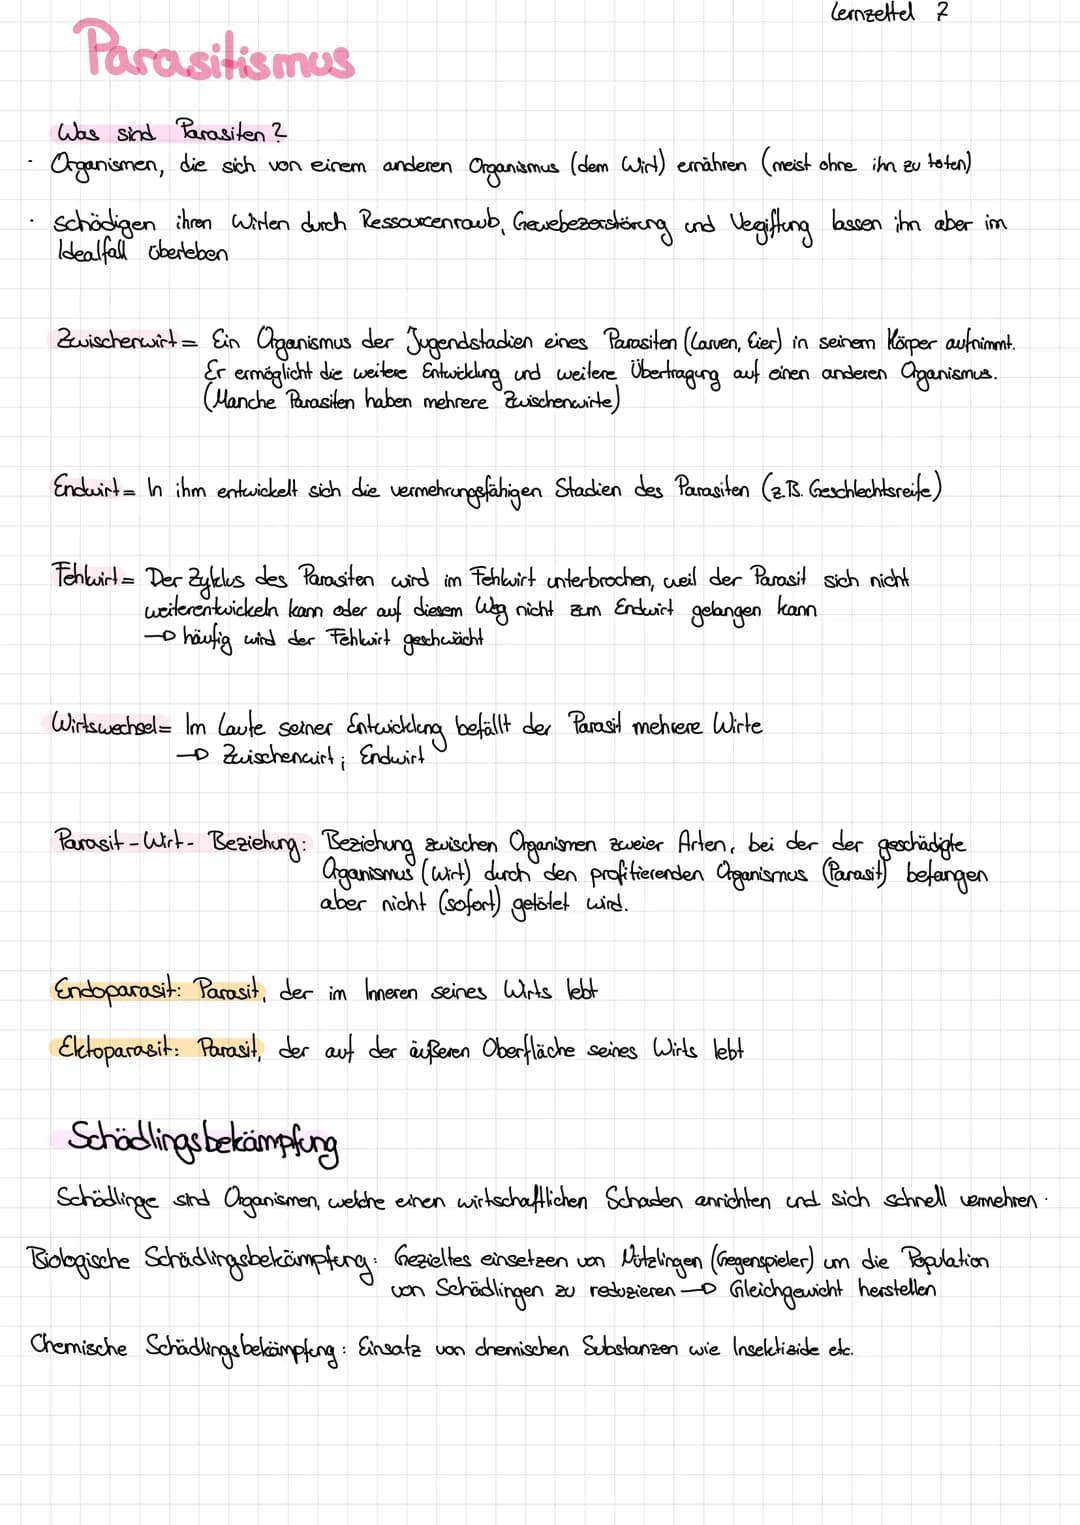 Lernzettel 7
Parasitismus
Was sind Parasiten?
· Organismen, die sich von einem anderen Organismus (dem Wirt) ernähren (meist ohne ihn zu töten)
· schädigen ihren Wirten durch Ressourcenraub, Gewebezerstörung und Vegiftung lassen ihn aber im
Idealfall überleben
Zwischenwirt = Ein Organismus der Jugendstadien eines Parasiten (Larven, Eier) in seinem Körper aufnimmt.
Er ermöglicht die weitere Entwicklung und weitere Übertragung auf einen anderen Organismus.
(Manche Parasiten haben mehrere Zwischenwirte)
Endwirt = In ihm entwickelt sich die vermehrungsfähigen Stadien des Parasiten (z.B. Geschlechtsreife)
Fehlwirt = Der Zyklus des Parasiten wird im Fehlwirt unterbrochen, weil der Parasit sich nicht
weiterentwickeln kann oder auf diesem Weg nicht zum Endwirt gelangen kann
→ häufig wird der Fehlwirt geschwächt
Wirtswechsel = Im Laufe seiner Entwicklung befällt der Parasit mehrere Wirte
→ Zwischenwirt ; Endwirt
Parasit-Wirt-Beziehung: Beziehung zwischen Organismen zweier Arten, bei der der geschädigte
Organismus (Wirt) durch den profitierenden Organismus (Parasit) befangen
aber nicht (sofort) getötet wird.
Endoparasit: Parasit, der im Inneren seines Wirts lebt
Ektoparasit: Parasit, der auf der äußeren Oberfläche seines Wirts lebt
Schädlingsbekämpfung
Schädlinge sind Organismen, welche einen wirtschaftlichen Schaden anrichten und sich schnell vermehren.
Biologische Schädlingsbekämpfung: Gezieltes einsetzen von Nützlingen (Gegenspieler) um die Population
von Schädlingen zu reduzieren → Gleichgewicht herstellen
Chemische Schädlingsbekämpfung: Einsatz von chemischen Substanzen wie Insektizide etc.